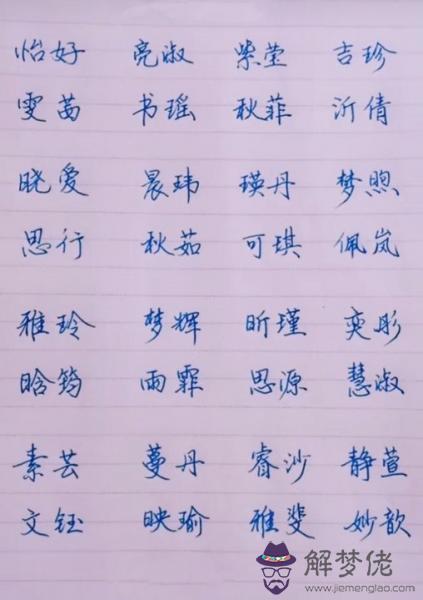 怡好 亮淑 紫莹 吉珍
雯茜 书瑶 秋菲 沂倩
晓爱 晨玮 瑛丹 梦煦
思行 秋茹 可琪 佩岚
雅玲 梦辉 昕瑾 奕彤
晗筠 雨霏 思源 慧淑
素芸 蔓丹 睿沙 静萱
文钰 映瑜 雅斐 妙歆
解梦佬
www.jiemenglao.com